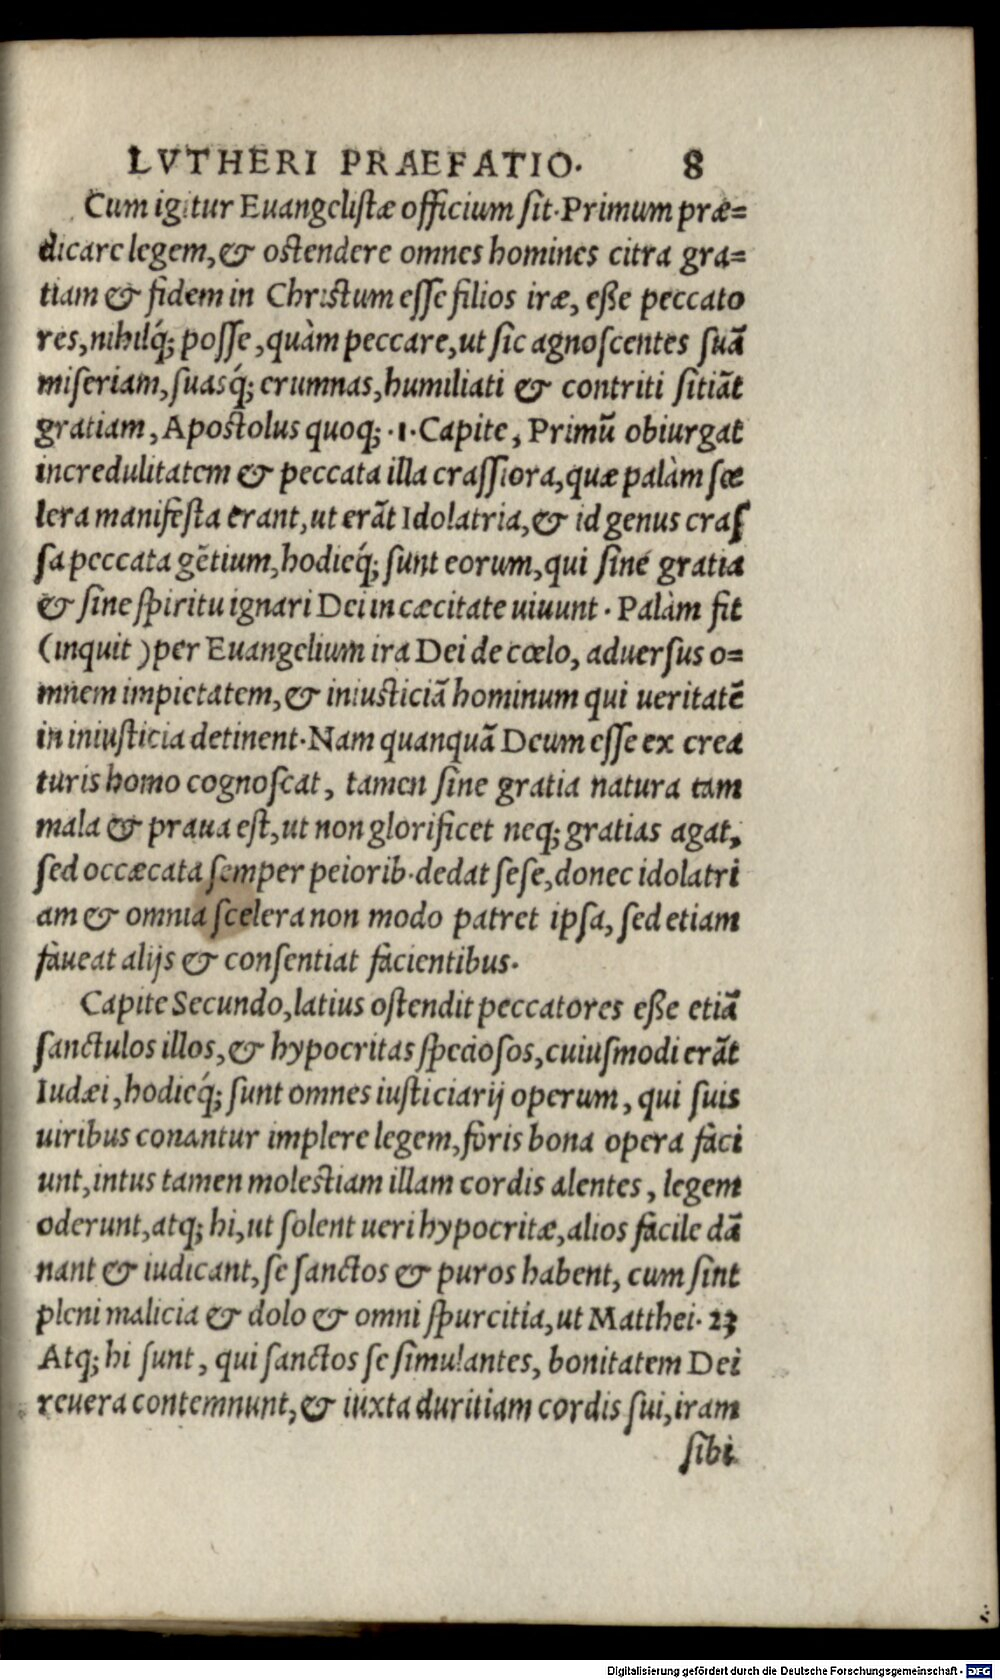 LVTHERI PRAEFATIO. 8
Cum igitur Euangelistæ officium sit. Primum præ=
dicare legem, & ostendere omnes homines citra gra=
tiam & fidem in Christum esse filios iræ, eße peccato
res, nihilq́; posse, quàm peccare, ut sic agnoscentes suã
miseriam, suasq́; erumnas, humiliati & contriti sitiãt
gratiam, Apostolus quoq; .1. Capite, Primũ obiurgat
incredulitatem & peccata illa crassiora, quæ palàm sce
lera manifesta erant, ut erãt Idolatria, & id genus cras
sa peccata gẽtium, hodieq́; sunt eorum, qui sine gratia
& sine spiritu ignari Dei in cæcitate uiuunt. Palàm fit
(inquit) per Euangelium ira Dei de cœlo, aduersus o=
mnem impietatem, & iniusticiã hominum qui ueritatẽ
in iniusticia detinent. Nam quanquã Deum esse ex crea
turis homo cognoscat, tamen sine gratia natura tam
mala & praua est, ut non glorificet neq; gratias agat,
sed occæcata semper peiorib. dedat sese, donec idolatri
am & omnia scelera non modo patret ipsa, sed etiam
faueat alijs & consentiat facientibus.
Capite Secundo, latius ostendit peccatores eße etiã
sanctulos illos, & hypocritas speciosos, cuiusmodi erãt
Iudæi, hodieq́; sunt omnes iusticiarij operum, qui suis
uiribus conantur implere legem, foris bona opera faci
unt, intus tamen molestiam illam cordis alentes, legem
oderunt, atq; hi, ut solent ueri hypocritæ, alios facile dã
nant & iudicant, se sanctos & puros habent, cum sint
pleni malicia & dolo & omni spurcitia, ut Matthei. 23
Atq; hi sunt, qui sanctos se simulantes, bonitatem Dei
reuera contemnunt, & iuxta duritiam cordis sui, iram
sibi
Digitalisierung gefördert durch die Deutsche Forschungsgemeinschaft - DFG